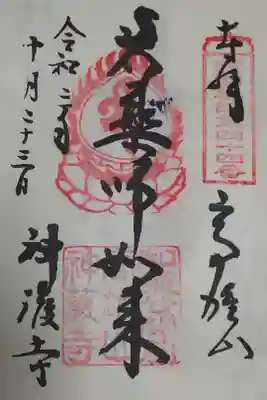 奉拝
高雄山
薬師如来
神護寺
令和二年
十月二十三日
神護寺